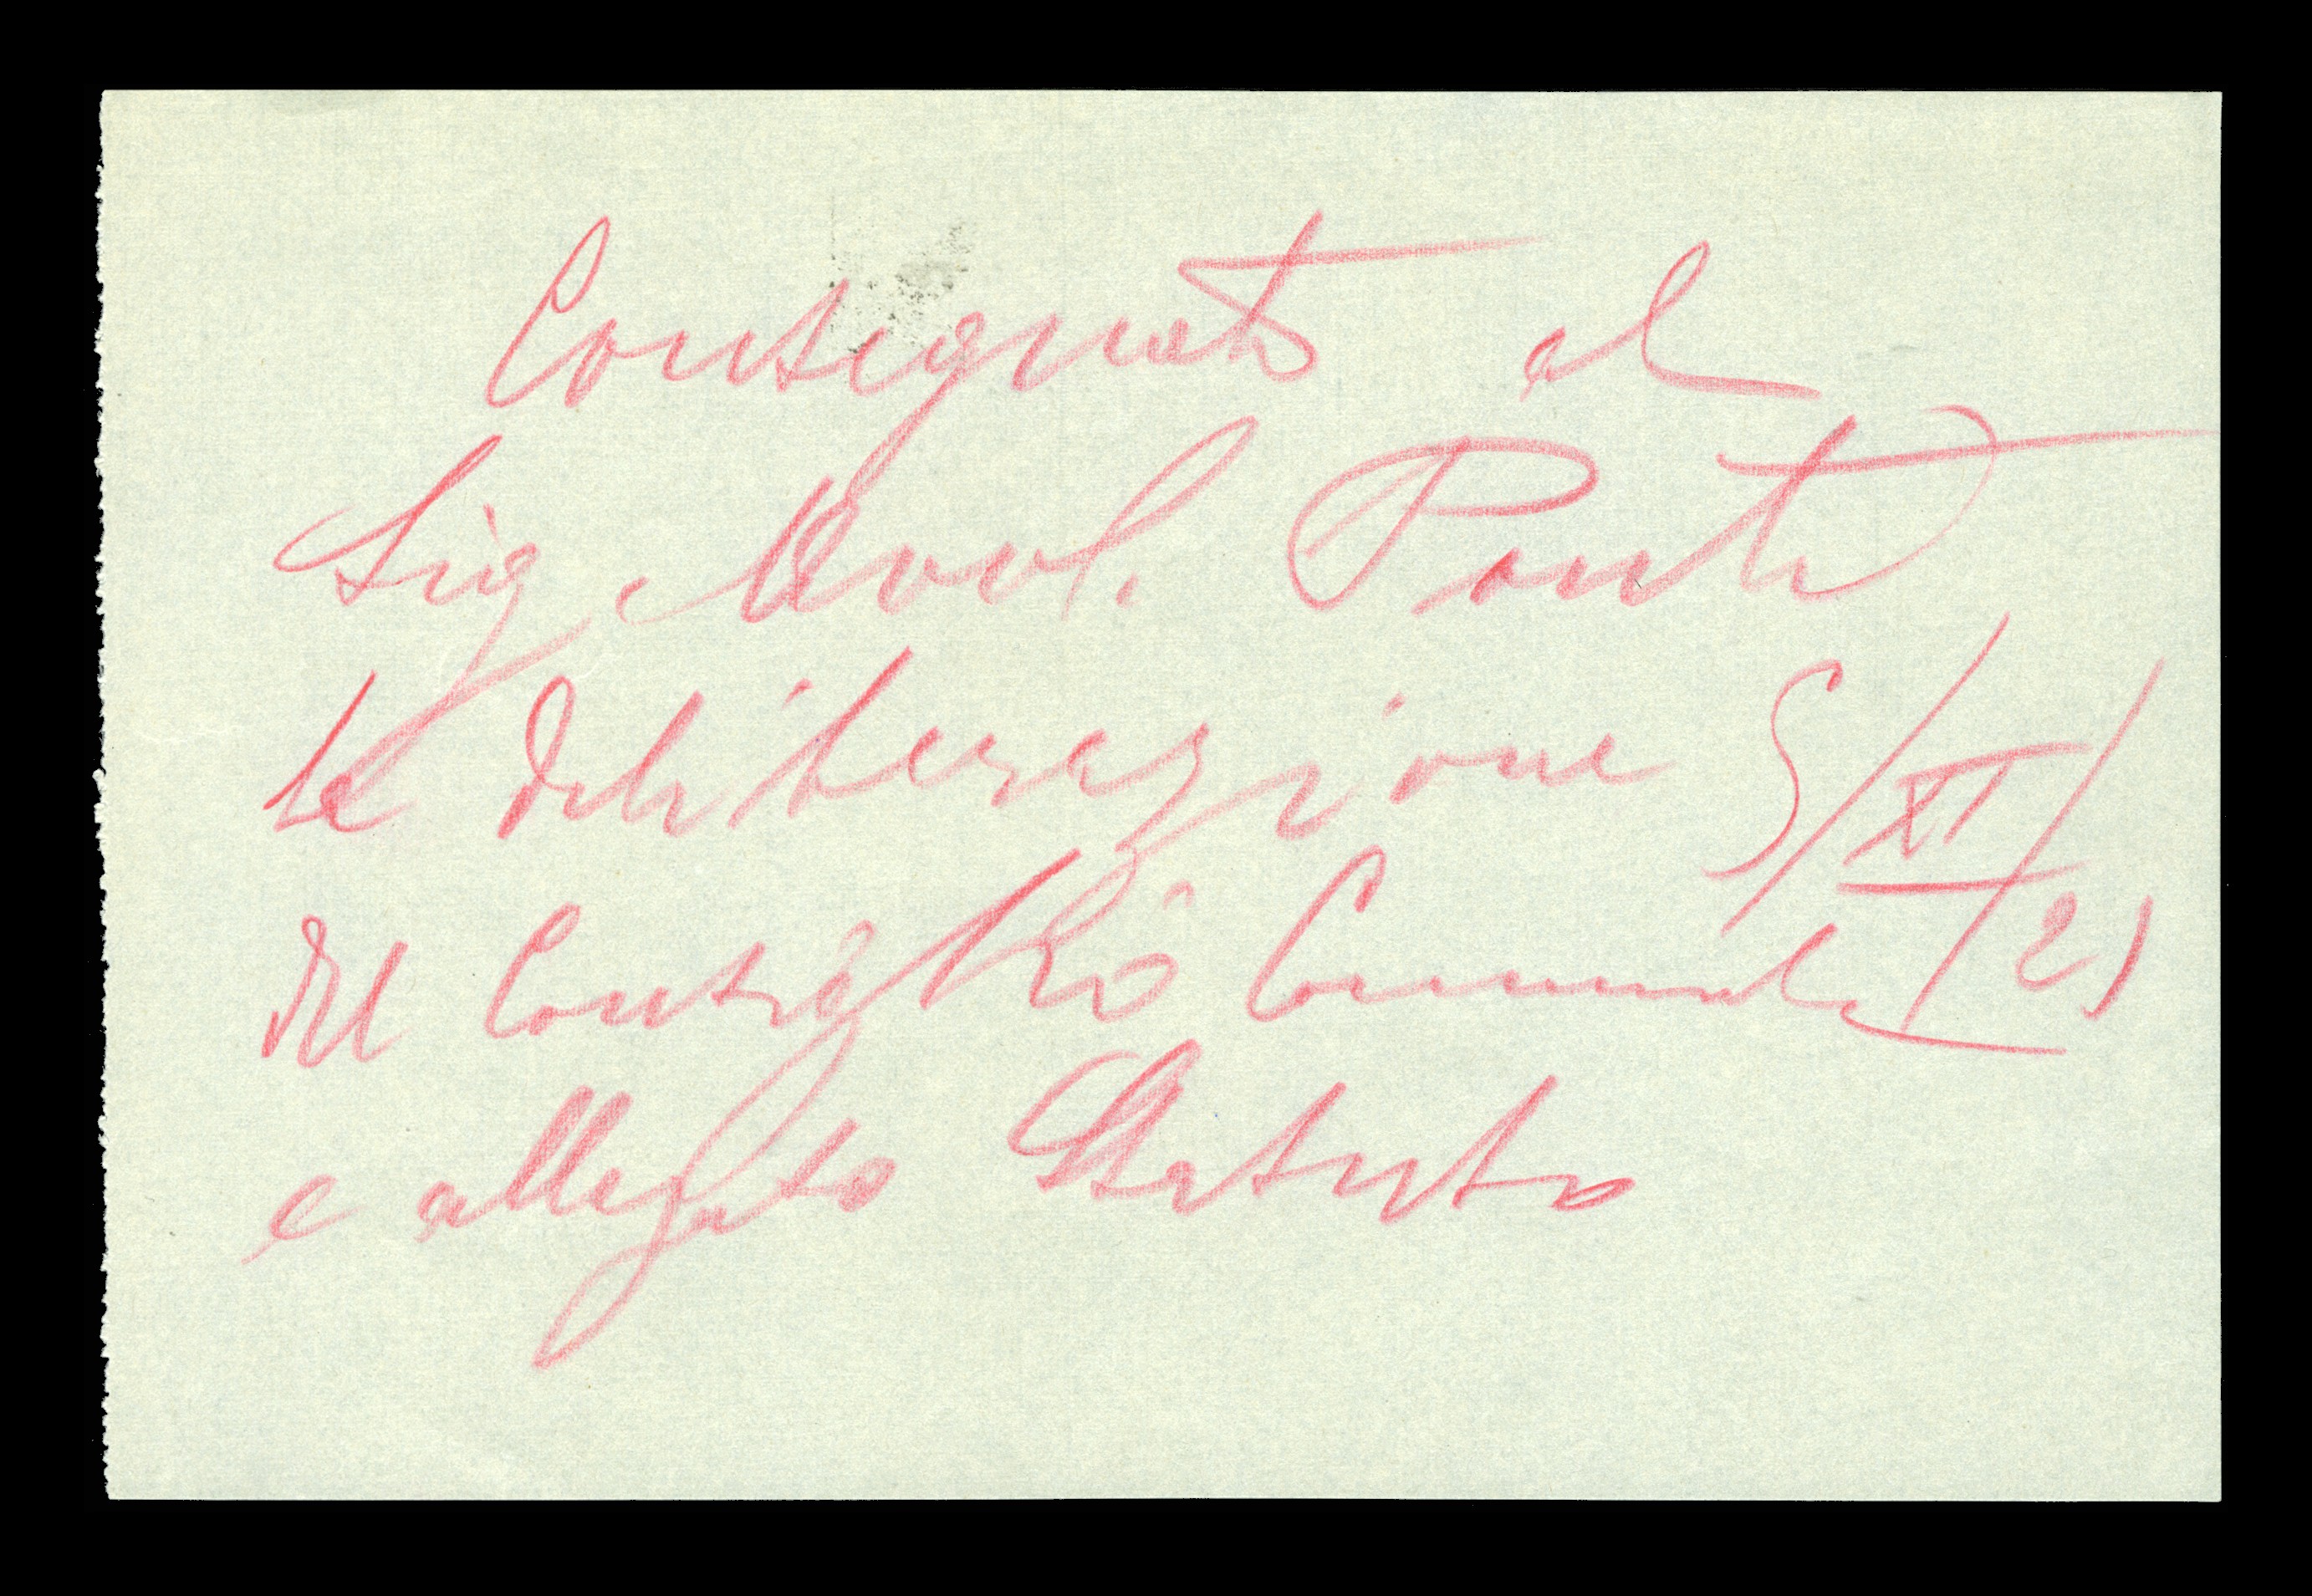 Consegnato al
Sig. Avv. Ponti
la deliberazione 5/XI/21
del Consiglio Comunale
e allegato Statuto